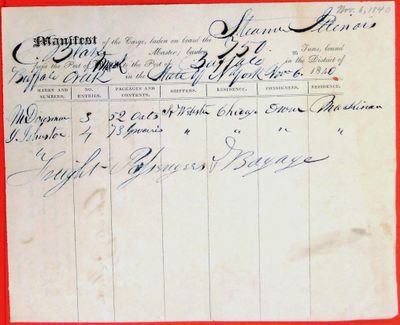 Nov. 6, 1840
Manifest of the Cargo, laden on board the Steamer Illenois
C. Blake Master; burthen 750 Tons, bound
from the Port of to the Port of Buffalo in the District of
Buffalo Creek in the State of N York Nov 6. 1840.
MARKS AND NUMBERS. NO. ENTRIES. PACKAGES AND CONTENTS. SHIPPERS. RESIDENCE. CONSIGNEES. RESIDENCE.
3 52 Oats Webster Chicago Owner Mackinac
Johnston 4 " " " "
" Freight Passengers & Bagage